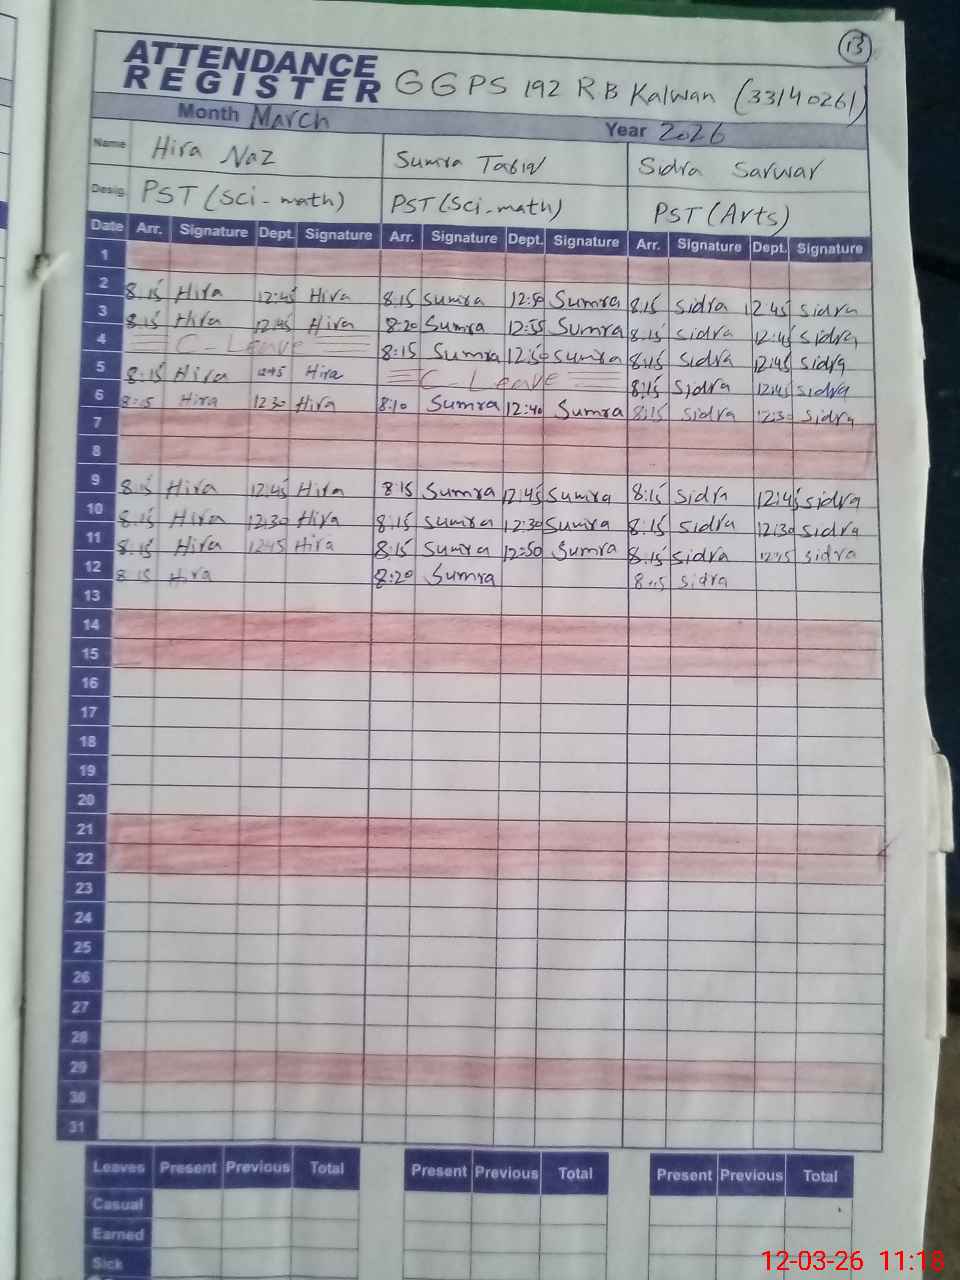 13
ATTENDANCE
REGISTER GGPS 192 RB Kalwan (33140261)
Month March Year 2026
Name Hira Naz Sumra Sidra Sarwar
Desig. PST (Sci-math) PST (Sci-math) PST (Arts)
Date Arr. Signature Dept. Signature Arr. Signature Dept. Signature Arr. Signature Dept. Signature
1
2 8:15 Hira 12:45 Hira 8:15 Sumra 12:50 Sumra 8:15 Sidra 12:45 Sidra
3 8:15 Hira 12:45 Hira 8:20 Sumra 12:55 Sumra 8:15 Sidra 12:45 Sidra
4 C-Leave 8:15 Sumra 12:50 Sumra 8:15 Sidra 12:45 Sidra
5 8:15 Hira 12:45 Hira C-Leave 8:15 Sidra 12:45 Sidra
6 8:15 Hira 12:30 Hira 8:10 Sumra 12:40 Sumra 8:15 Sidra 12:30 Sidra
7
8
9 8:15 Hira 12:45 Hira 8:15 Sumra 12:45 Sumra 8:15 Sidra 12:45 Sidra
10 8:15 Hira 12:30 Hira 8:15 Sumra 12:30 Sumra 8:15 Sidra 12:30 Sidra
11 8:15 Hira 12:45 Hira 8:15 Sumra 12:50 Sumra 8:15 Sidra 12:45 Sidra
12 8:15 Hira 8:20 Sumra 8:15 Sidra
13
14
15
16
17
18
19
20
21
22
23
24
25
26
27
28
29
30
31
Leaves Present Previous Total Present Previous Total Present Previous Total
Casual
Earned
Sick
12-03-26 11:18